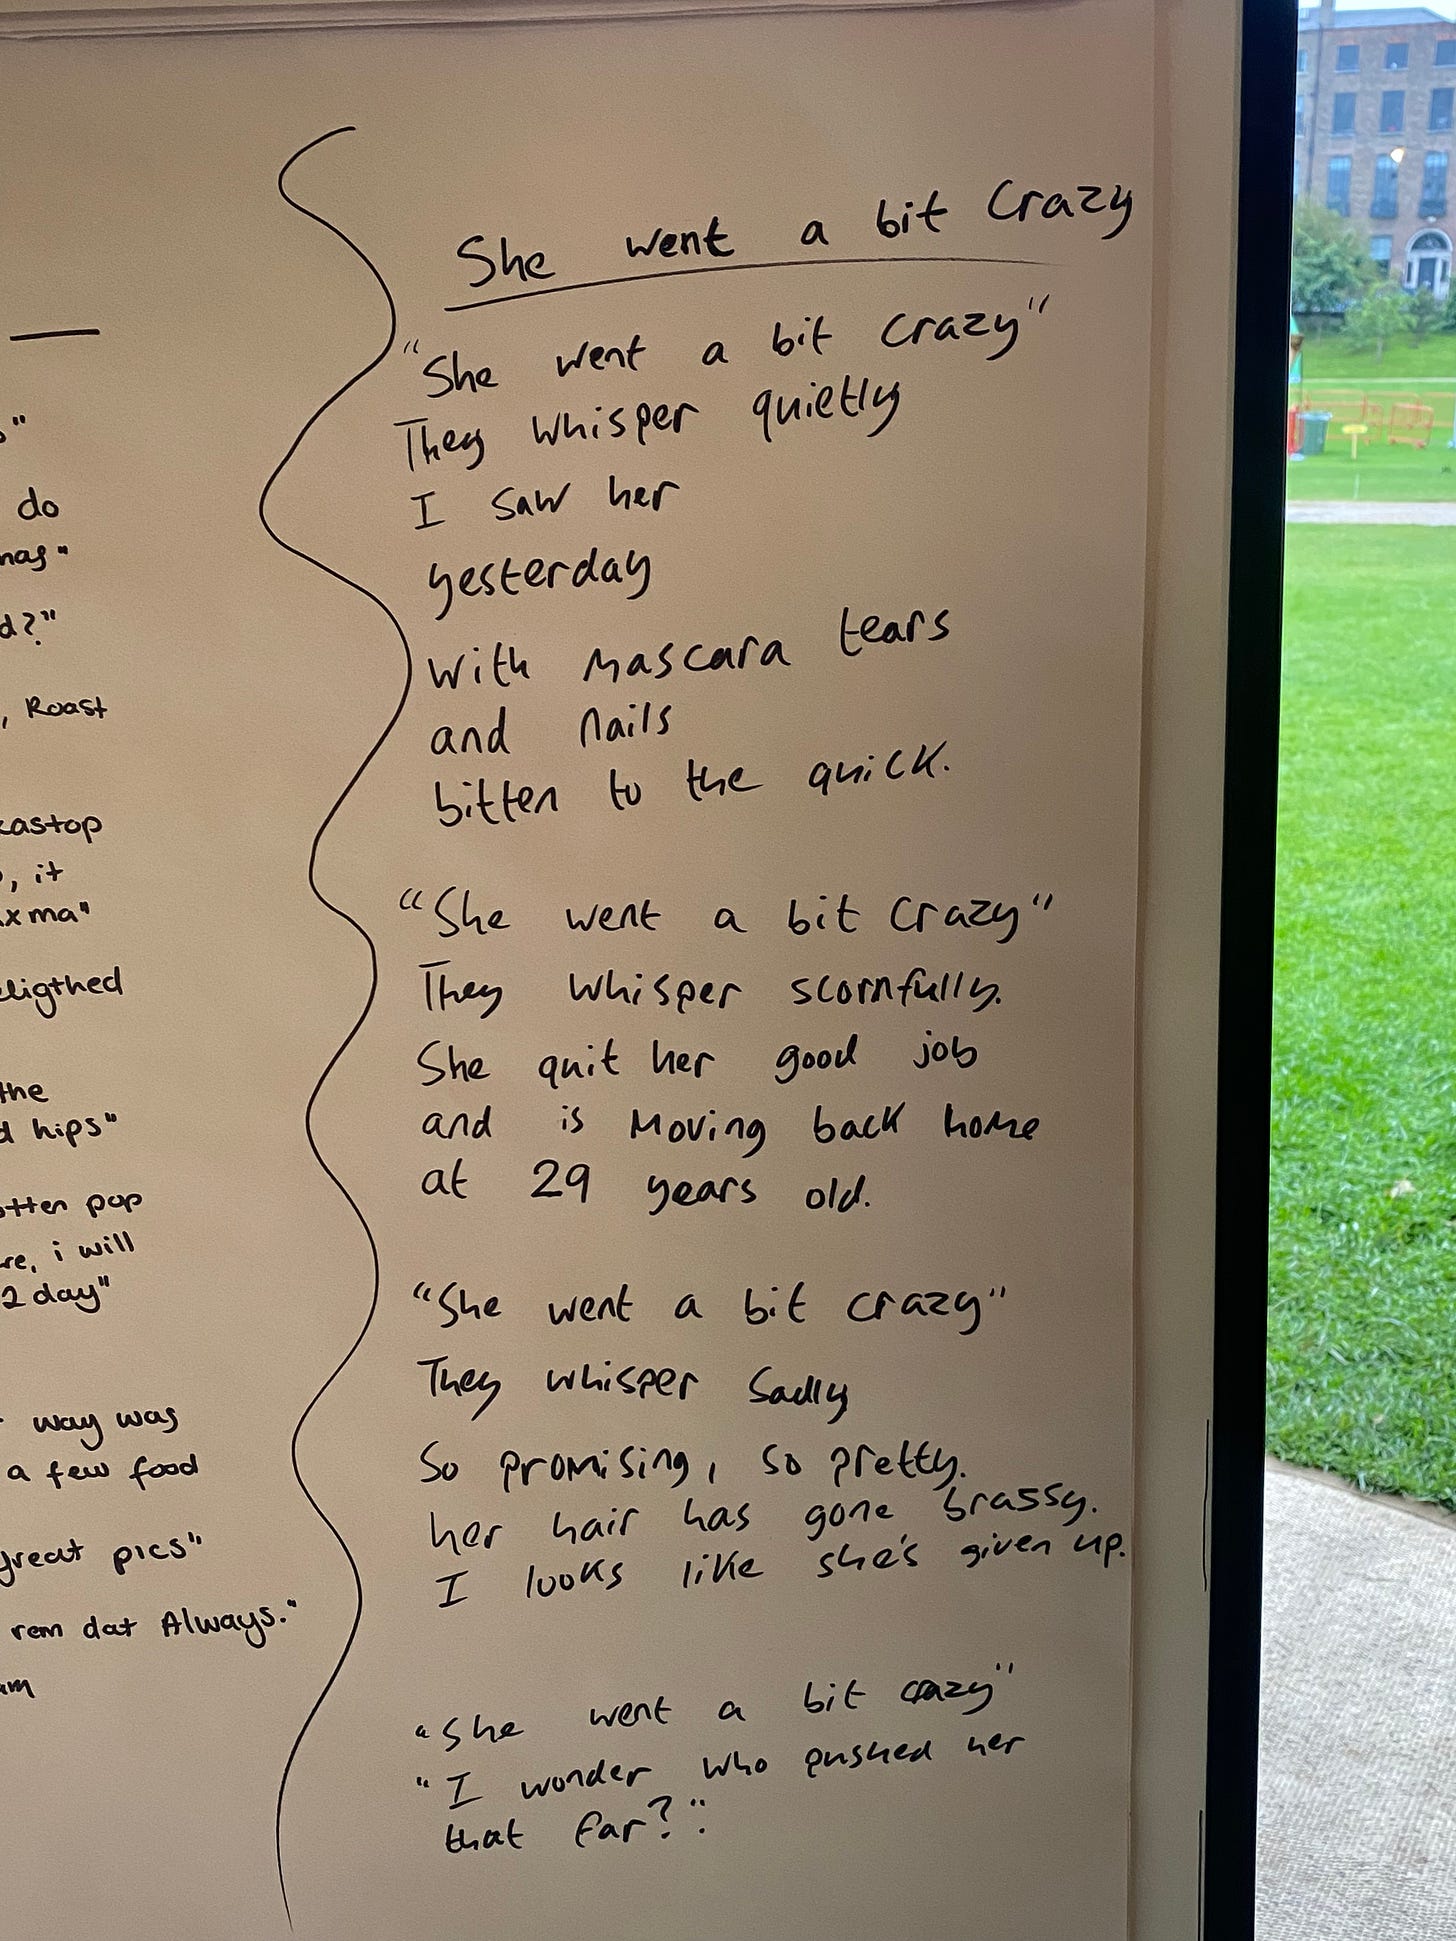 do
Roast
it
the
hips"
pop
i will
2 day"
way was
a few food
great pics"
rem dat Always."
She went a bit Crazy
"She went a bit crazy"
They whisper quietly
I saw her
yesterday
with mascara tears
and nails
bitten to the quick.
"She went a bit crazy"
They whisper scornfully.
She quit her good job
and is moving back home
at 29 years old.
"She went a bit crazy"
They whisper sadly
So promising, so pretty.
her hair has gone brassy.
I looks like she's given up.
"She went a bit crazy"
"I wonder who pushed her
that far?".